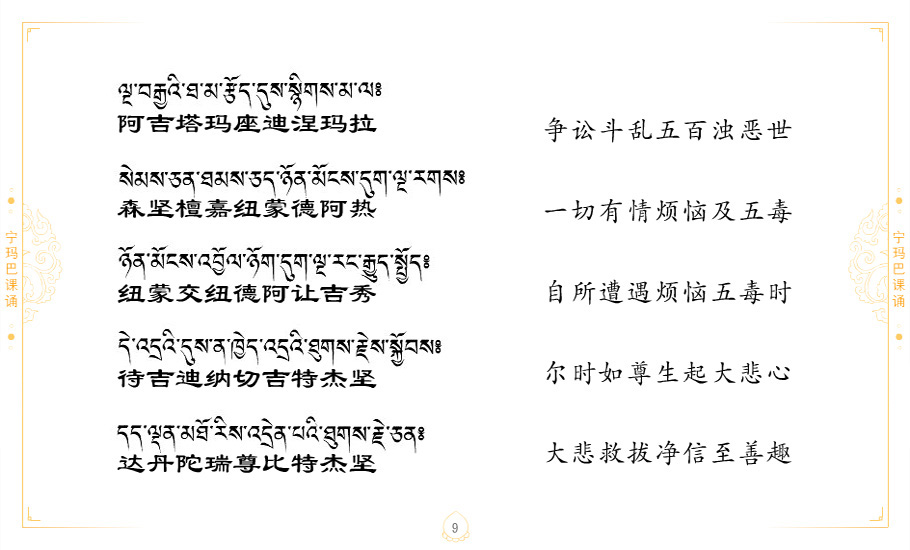 ལྔ་བརྒྱའི་ཐ་མ་རྩོད་དུས་སྙིགས་མ་ལ༔
阿吉塔玛座迪涅玛拉
争讼斗乱五百浊恶世
སེམས་ཅན་ཐམས་ཅད་ཉོན་མོངས་དུག་ལྔ་རགས༔
森坚檀嘉纽蒙德阿热
一切有情烦恼及五毒
ཉོན་མོངས་འཁྲོལ་ཉོག་དུག་ལྔ་རང་རྒྱུད་སྤྱོད༔
纽蒙交纽德阿让吉秀
自所遭遇烦恼五毒时
དེ་འདྲའི་དུས་ན་ཁྱེད་འདྲའི་ཐུགས་རྗེས་སྐྱོབས༔
待吉迪纳切吉特杰坚
尔时如尊生起大悲心
དད་ལྡན་མཐོ་རིས་འདྲེན་པའི་ཐུགས་རྗེ་ཅན༔
达丹陀瑞尊比特杰坚
大悲救拔净信至善趣
宁玛巴课诵
宁玛巴课诵
9